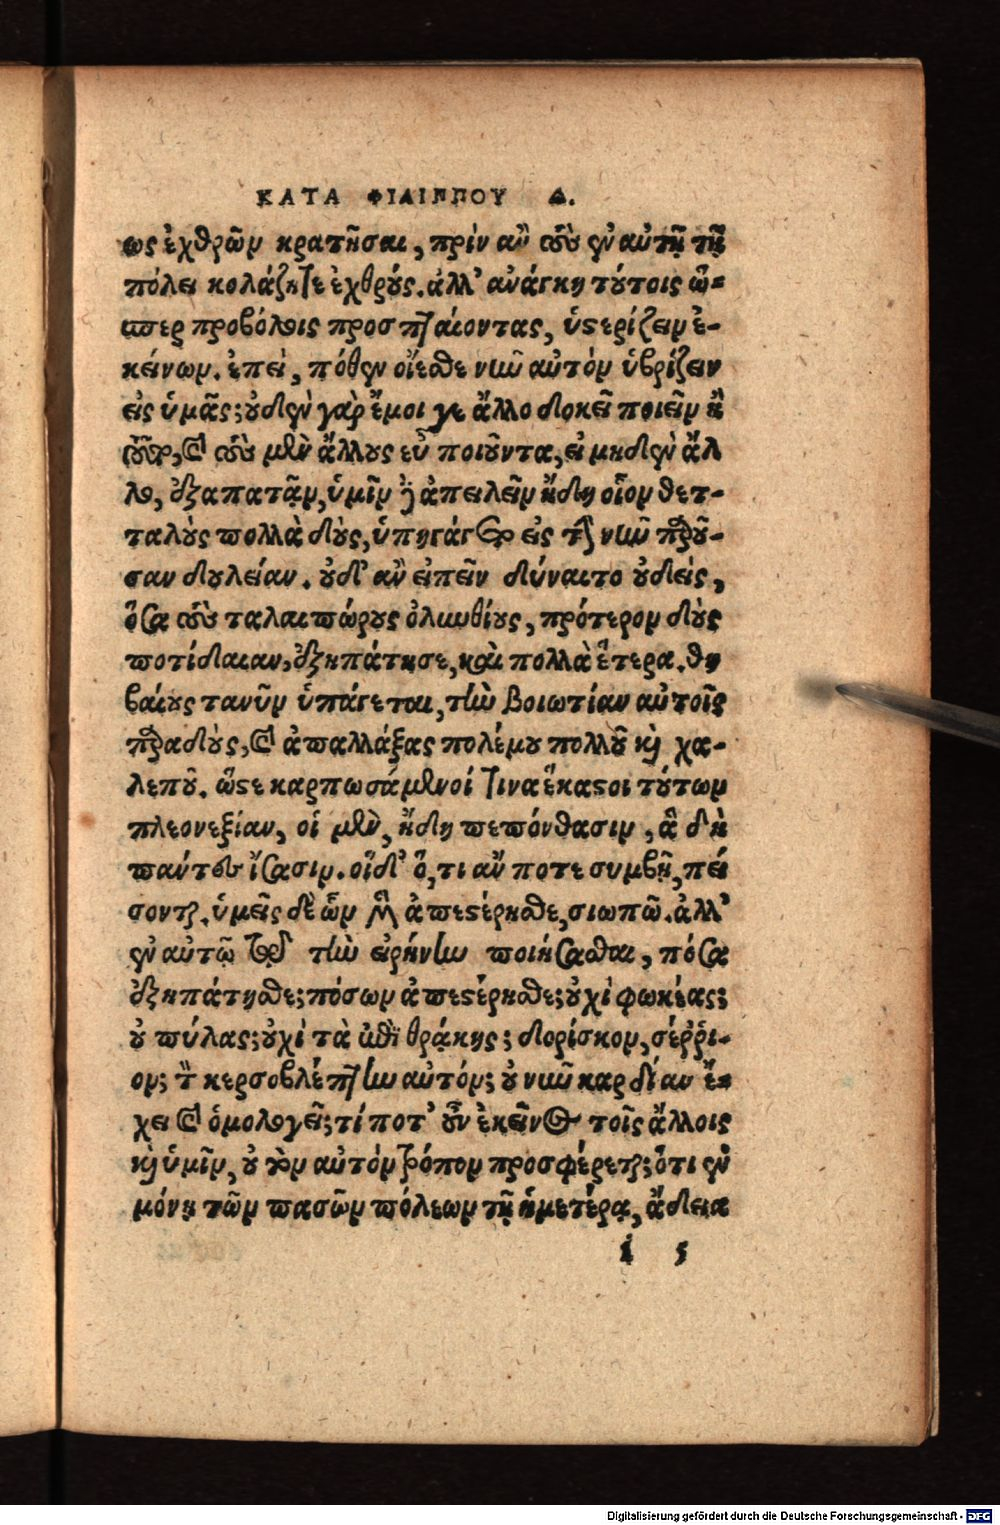 ΚΑΤΑ ΦΙΛΙΠΠΟΥ Δ.
ως ἐχθρῶν κρατῆσαι, πρὶν ἂν τοὺς ἐν αὐτῇ τῇ
πόλει κολάζητε ἐχθρούς. ἀλλ' ἀνάγκη τούτοις ὥ-
σπερ προβόλοις προσπταίοντας, ὑστερίζειν ἐ-
κείνων. ἐπεὶ, πόθεν οἴεσθε νῦν αὐτὸν ὑβρίζειν
εἰς ὑμᾶς; οὐδὲν γὰρ ἔμοι γε ἄλλο δοκεῖ ποιεῖν ἢ
τοῦτο, καὶ τοὺς μὲν ἄλλους εὖ ποιοῦντα, εἰ μηδὲν ἄλ
λο, ἐξαπατᾷν, ὑμῖν δ' ἀπειλεῖν ἤδη οἷον θετ-
ταλοὺς πολλὰ δοὺς, ὑπηγάγετο εἰς τὴν νῦν παροῦ-
σαν δουλείαν. οὐδ' ἂν εἰπεῖν δύναιτο οὐδεὶς,
ὅσα τοὺς ταλαιπώρους ὀλυνθίους, πρότερον δοὺς
ποτίδαιαν, ἐξηπάτησε, καὶ πολλὰ ἕτερα. θη
βαίους τανῦν ὑπάγεται, τὴν βοιωτίαν αὐτοῖς
παραδοὺς, καὶ ἀπαλλάξας πολέμου πολλοῦ καὶ χα-
λεποῦ. ὥστε καρπωσάμενοί τινα ἕκαστοι τούτων
πλεονεξίαν, οἱ μὲν, ἤδη πεπόνθασιν, ἃ δὴ
πάντες ἴσασιν. οἱ δ' ὅ, τι ἄν ποτε συμβῇ, πεί
σονται. ὑμεῖς δὲ ὧν μὲν ἀπεστέρησθε, σιωπῶ. ἀλλ'
ἐν αὐτῷ τῷ τὴν εἰρήνην ποιήσασθαι, πόσα
ἐξηπάτησθε; πόσων ἀπεστέρησθε; οὐχὶ φωκέας;
οὐ πύλας; οὐχὶ τὰ ἐπὶ θρᾴκης; δορίσκον, σέρρι-
ον; τὸν κερσοβλέπτην αὐτόν; οὐ νῦν καρδίαν ἔ-
χει καὶ ὁμολογεῖ; τί ποτ' οὖν ἐκεῖνος τοῖς ἄλλοις
καὶ ὑμῖν, οὐ τὸν αὐτὸν τρόπον προσφέρεται; ὅτι ἐν
μόνῃ τῶν πασῶν πόλεων τῇ ἡμετέρᾳ, ἄδεια
i 5
Digitalisierung gefördert durch die Deutsche Forschungsgemeinschaft - DFG